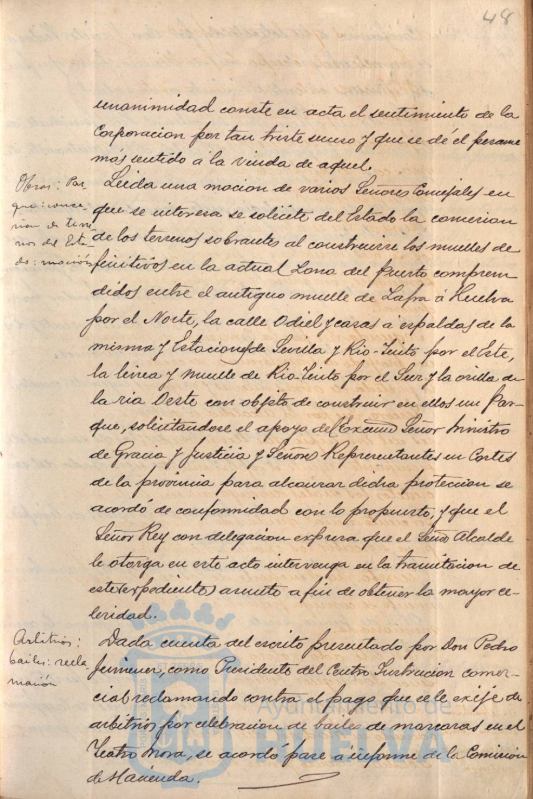 48
unanimidad conste en acta el sentimiento de la
Corporacion por tan triste suceso y que se dé el pesame
más sentido á la viuda de aquel.
Obras: Par
que: conce
sion de terre
nos del Esta
do: mación
Leida una mocion de varios Señores Concejales en
que se interesa se solicite del Estado la concesion
de los terrenos sobrantes al construirse los muelles de
finitivos en la actual Zona del Puerto compren
didos entre el antiguo muelle de Zafra á Huelva
por el Norte, la calle Odiel y casas á espaldas de la
misma y Estaciones de Sevilla y Rio-Tinto por el Este,
la linea y muelle de Rio-Tinto por el Sur y la orilla de
la ria Oeste con objeto de construir en ellos un Par
que, solicitandose el apoyo del Excmo Señor Ministro
de Gracia y Justicia y Señores Representantes en Cortes
de la provincia para alcanzar dicha proteccion se
acordó de conformidad con lo propuesto, y que el
Señor Rey con delegacion expresa que el Señor Alcalde
le otorga en este acto intervenga en la tramitacion de
este (expediente) asunto a fin de obtener la mayor ce-
leridad.
Arbitrios:
bailes: recla
mación
Dada cuenta del escrito presentado por Don Pedro
Jimenez, como Presidente del Centro Instruccion comer-
cial reclamando contra el pago que se le exije de
arbitrios por celebracion de bailes de mascaras en el
Teatro Mora, se acordó pase a informe de la Comision
de Hacienda.
Ayuntamiento de
HUELVA